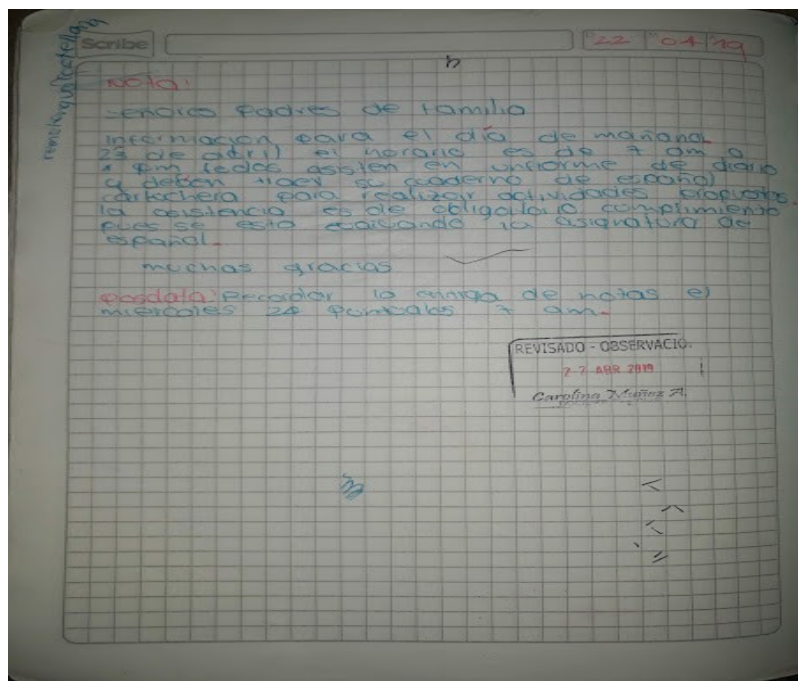 Scribe
22 04 19
Nota:
Señores Padres de Familia
información para el día de mañana
23 de abril el horario es de 7 am a
pm todos asisten en uniforme de diario
y deben traer su cuaderno de español
cartuchera para realizar actividades propuestas.
la asistencia es de obligatorio cumplimiento
pues se esta la asignatura de
español.
muchas gracias
Posdata: Recordar la de notas el
miercoles 24 7 am.
REVISADO - OBSERVACIO.
22 ABR 2019
Carolina Muñoz A.